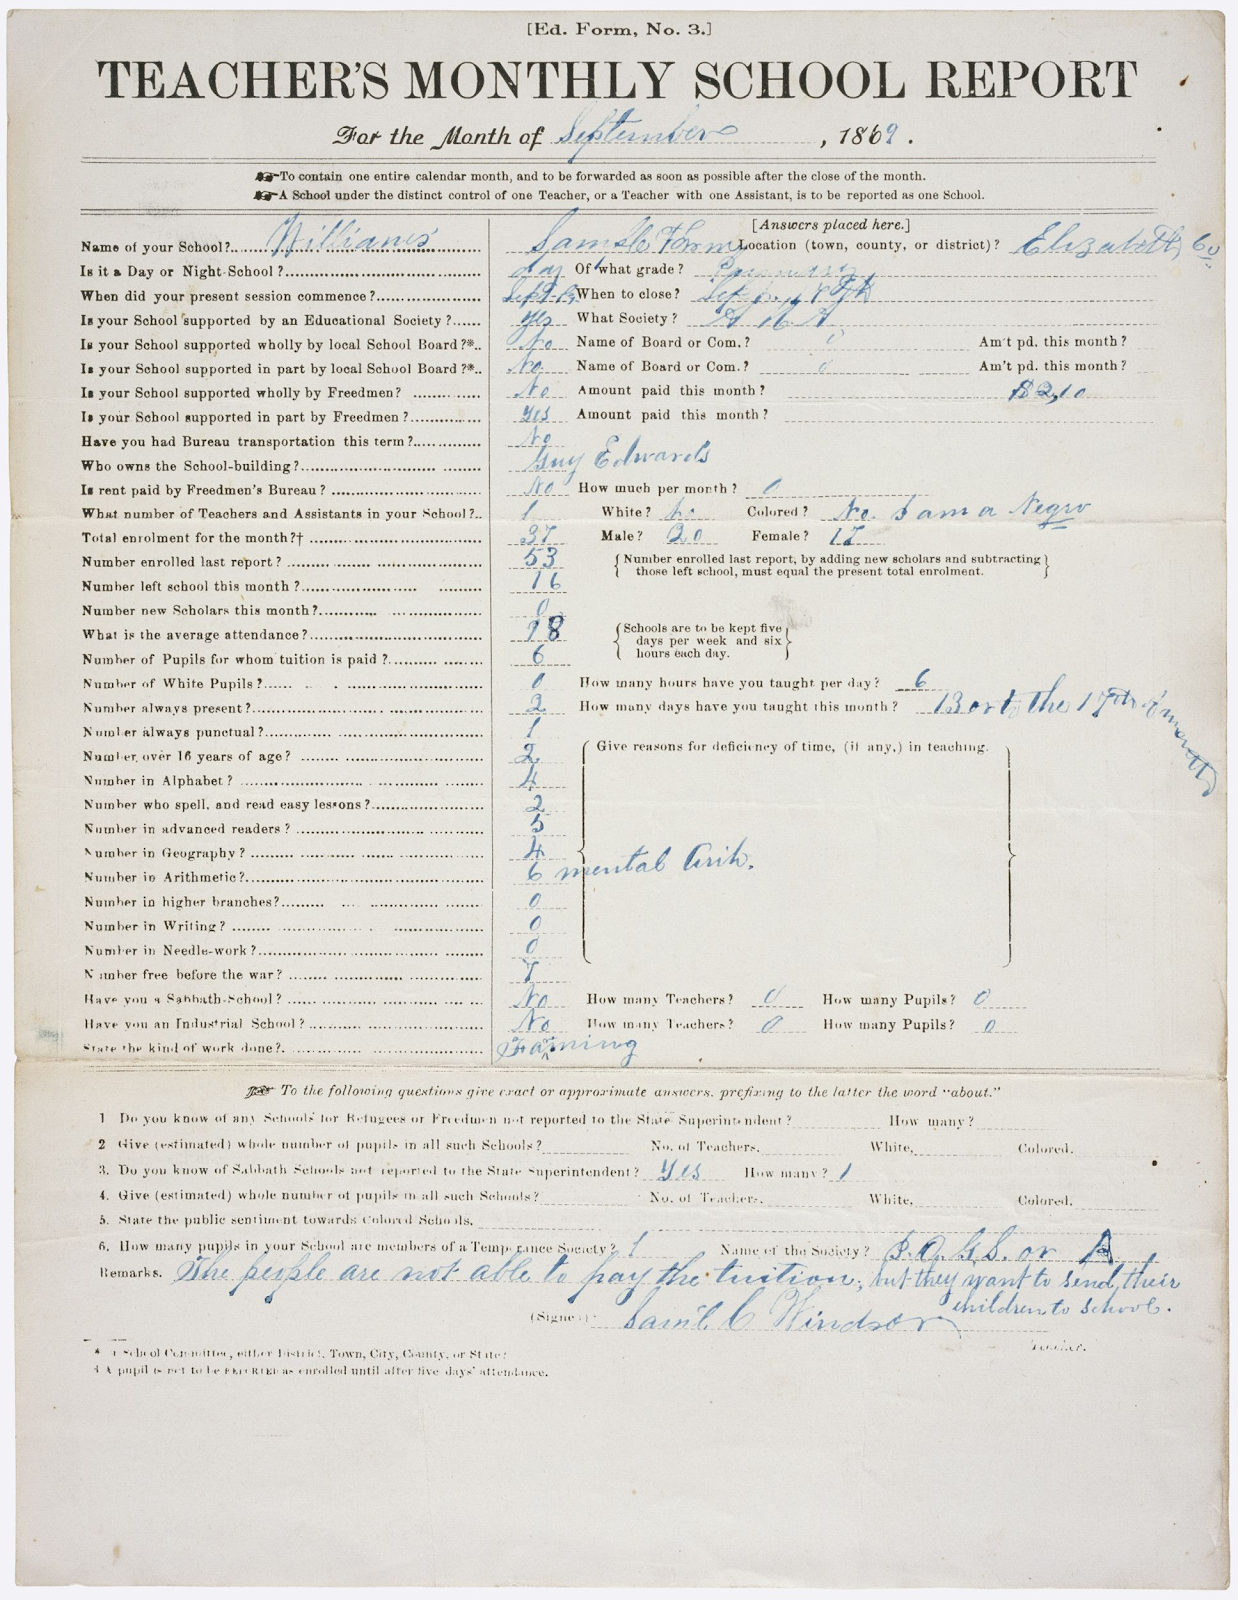 [Ed. Form, No. 3.]
TEACHER'S MONTHLY SCHOOL REPORT
For the Month of September, 1869.
To contain one entire calendar month, and to be forwarded as soon as possible after the close of the month.
A School under the distinct control of one Teacher, or a Teacher with one Assistant, is to be reported as one School.
[Answers placed here.]
Name of your School? Location (town, county, or district)? Elizabeth Co
Is it a Day or Night-School? day Of what grade?
When did your present session commence? When to close?
Is your School supported by an Educational Society? Yes What Society? A M A
Is your School supported wholly by local School Board?* No Name of Board or Com.? 0 Am't pd. this month?
Is your School supported in part by local School Board?* No Name of Board or Com.? 0 Am't pd. this month?
Is your School supported wholly by Freedmen? No Amount paid this month? $2,10
Is your School supported in part by Freedmen? Yes Amount paid this month?
Have you had Bureau transportation this term? No
Who owns the School-building? Guy Edwards
Is rent paid by Freedmen's Bureau? No How much per month? 0
What number of Teachers and Assistants in your School? 1 White? Colored? No. I am a Negro
Total enrolment for the month?† 37 Male? 20 Female? 17
Number enrolled last report? 53 Number enrolled last report, by adding new scholars and subtracting
those left school, must equal the present total enrolment.
Number left school this month? 16
Number new Scholars this month? 0
What is the average attendance? Schools are to be kept five
days per week and six
hours each day.
Number of Pupils for whom tuition is paid? 6
Number of White Pupils? 0 How many hours have you taught per day? 6
Number always present? 2 How many days have you taught this month? 13 or to the 17th
Number always punctual? 1
Number over 16 years of age? 2 Give reasons for deficiency of time, (if any,) in teaching.
Number in Alphabet? 4
Number who spell, and read easy lessons? 2
Number in advanced readers? 5
Number in Geography? 4
Number in Arithmetic? 6 mental Arih.
Number in higher branches? 0
Number in Writing? 0
Number in Needle-work? 0
Number free before the war? 7
Have you a Sabbath-School? No How many Teachers? 0 How many Pupils? 0
Have you an Industrial School? No How many Teachers? 0 How many Pupils? 0
State the kind of work done?
To the following questions give exact or approximate answers, prefixing to the latter the word "about."
1 Do you know of any Schools for Refugees or Freedmen not reported to the State Superintendent? How many?
2 Give (estimated) whole number of pupils in all such Schools? No. of Teachers, White, Colored.
3. Do you know of Sabbath Schools not reported to the State Superintendent? Yes How many? 1
4. Give (estimated) whole number of pupils in all such Schools? No. of Teachers, White, Colored.
5. State the public sentiment towards Colored Schools.
6. How many pupils in your School are members of a Temperance Society? 1 Name of the Society?
Remarks. The people are not able to pay the tuition; but they want to send their
children to school.
(Signed) Sam'l C Windsor
Teacher.
* School Committee, either District, Town, City, County, or State?
† A pupil is not to be REPORTED as enrolled until after five days' attendance.